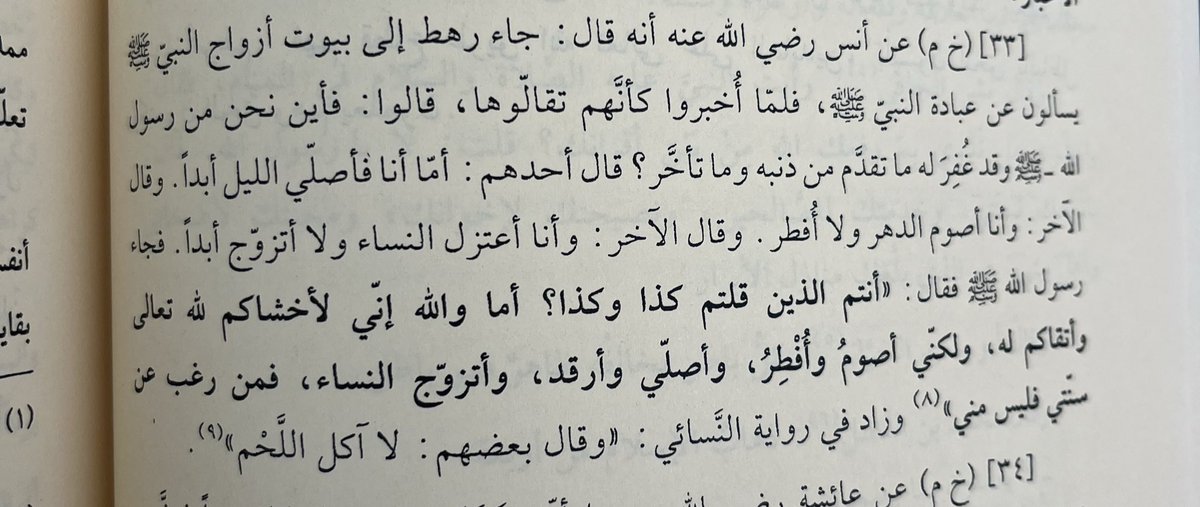 [٣٣] (خ م) عن أنس رضي الله عنه أنه قال: جاء رهط إلى بيوت أزواج النبيّ ﷺ
يسألون عن عبادة النبيّ ﷺ، فلمّا أُخبروا كأنَّهم تقالّوها، قالوا: فأين نحن من رسول
الله ـ ﷺ وقد غُفِرَ له ما تقدَّم من ذنبه وما تأخَّر؟ قال أحدهم: أمّا أنا فأصلّي الليل أبداً. وقال
الآخر: وأنا أصوم الدهر ولا أُفطر. وقال الآخر: وأنا أعتزل النساء ولا أتزوّج أبداً. فجاء
رسول الله ﷺ فقال: «أنتم الذين قلتم كذا وكذا؟ أما والله إنّي لأخشاكم لله تعالى
وأتقاكم له، ولكنّي أصومُ وأُفْطِرُ، وأصلّي وأرقد، وأتزوّج النساء، فمن رغب عن
سنّتي فليس مني»(٨) وزاد في رواية النَّسائي: «وقال بعضهم: لا آكل اللَّحْم»(٩).
[٣٤] (خ م) عن عائشة رضي الله
تعلّ
أنفس
بقاي
(١)